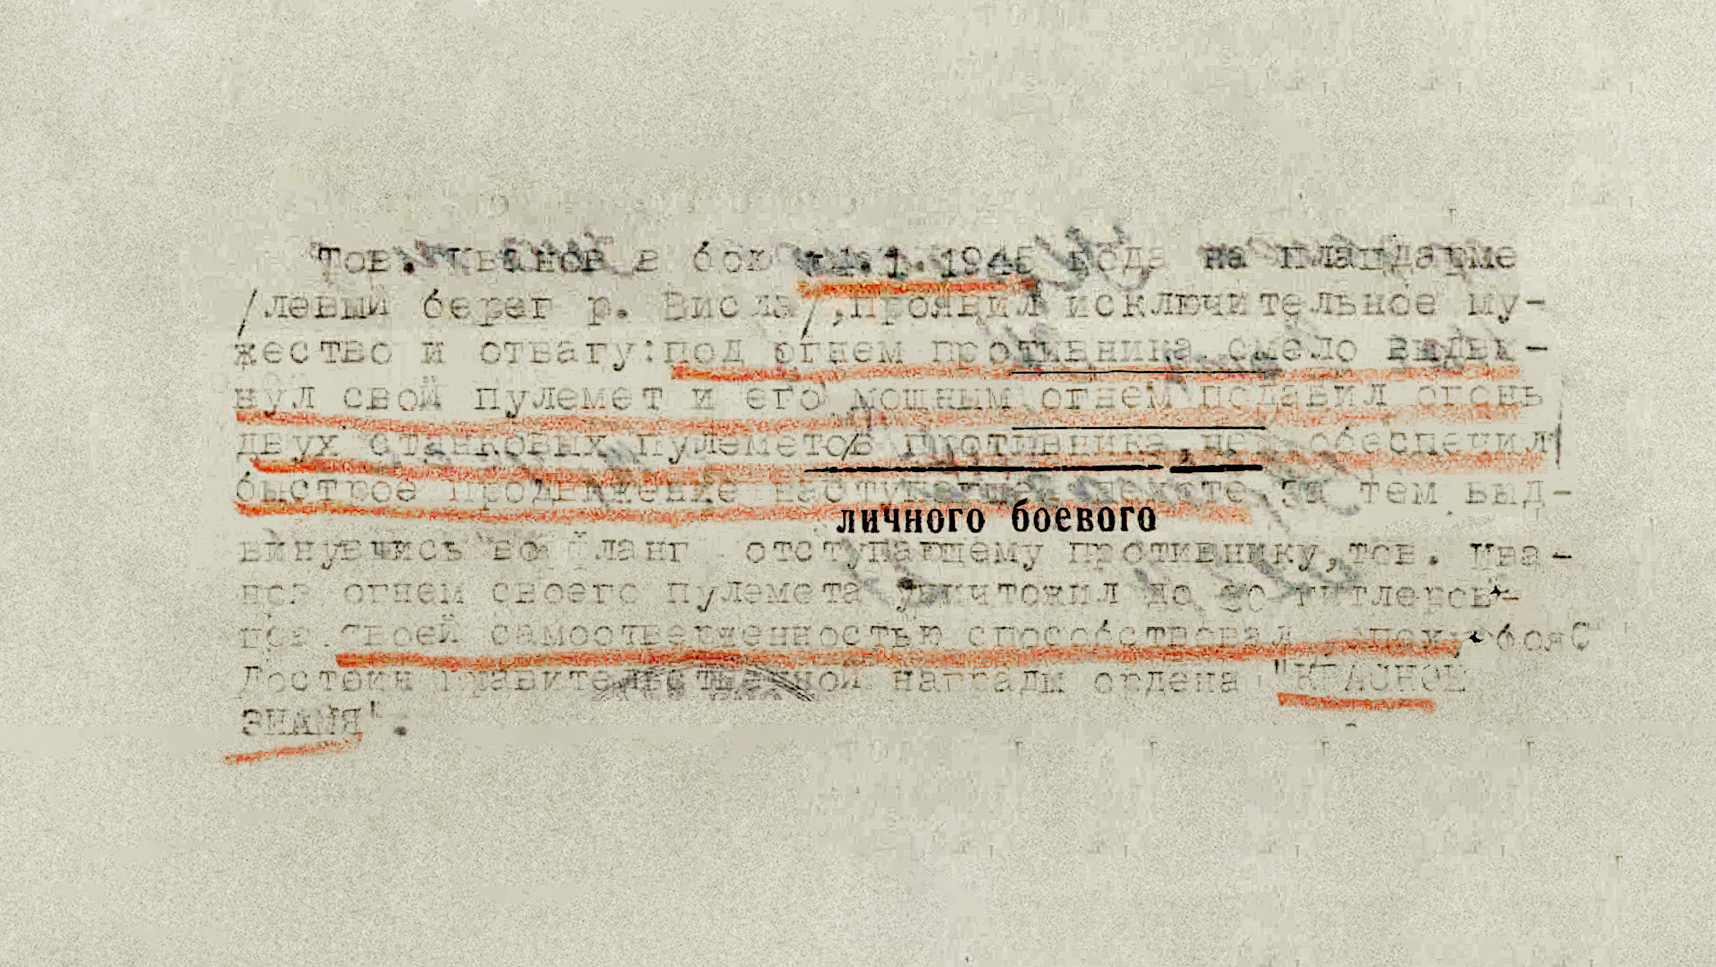 Тов. Иванов в бою 14.1.1945 года на плацдарме
/левый берег р. Висла/,проявил исключительное му-
жество и отвагу:под огнем противника смело выдви-
нул свой пулемет и его мощным огнем подавил огонь
двух станковых пулеметов противника, чем обеспечил
быстрое продвижение наступающей пехоте, за тем выд-
личного боевого
винувшись во фланг отступающему противнику,тов. Ива-
нов огнем своего пулемета уничтожил до гитлеров-
цев. Своей самоотверженностью способствовал успеху боя
Достоин правительственной награды ордена "КРАСНОЕ
ЗНАМЯ".